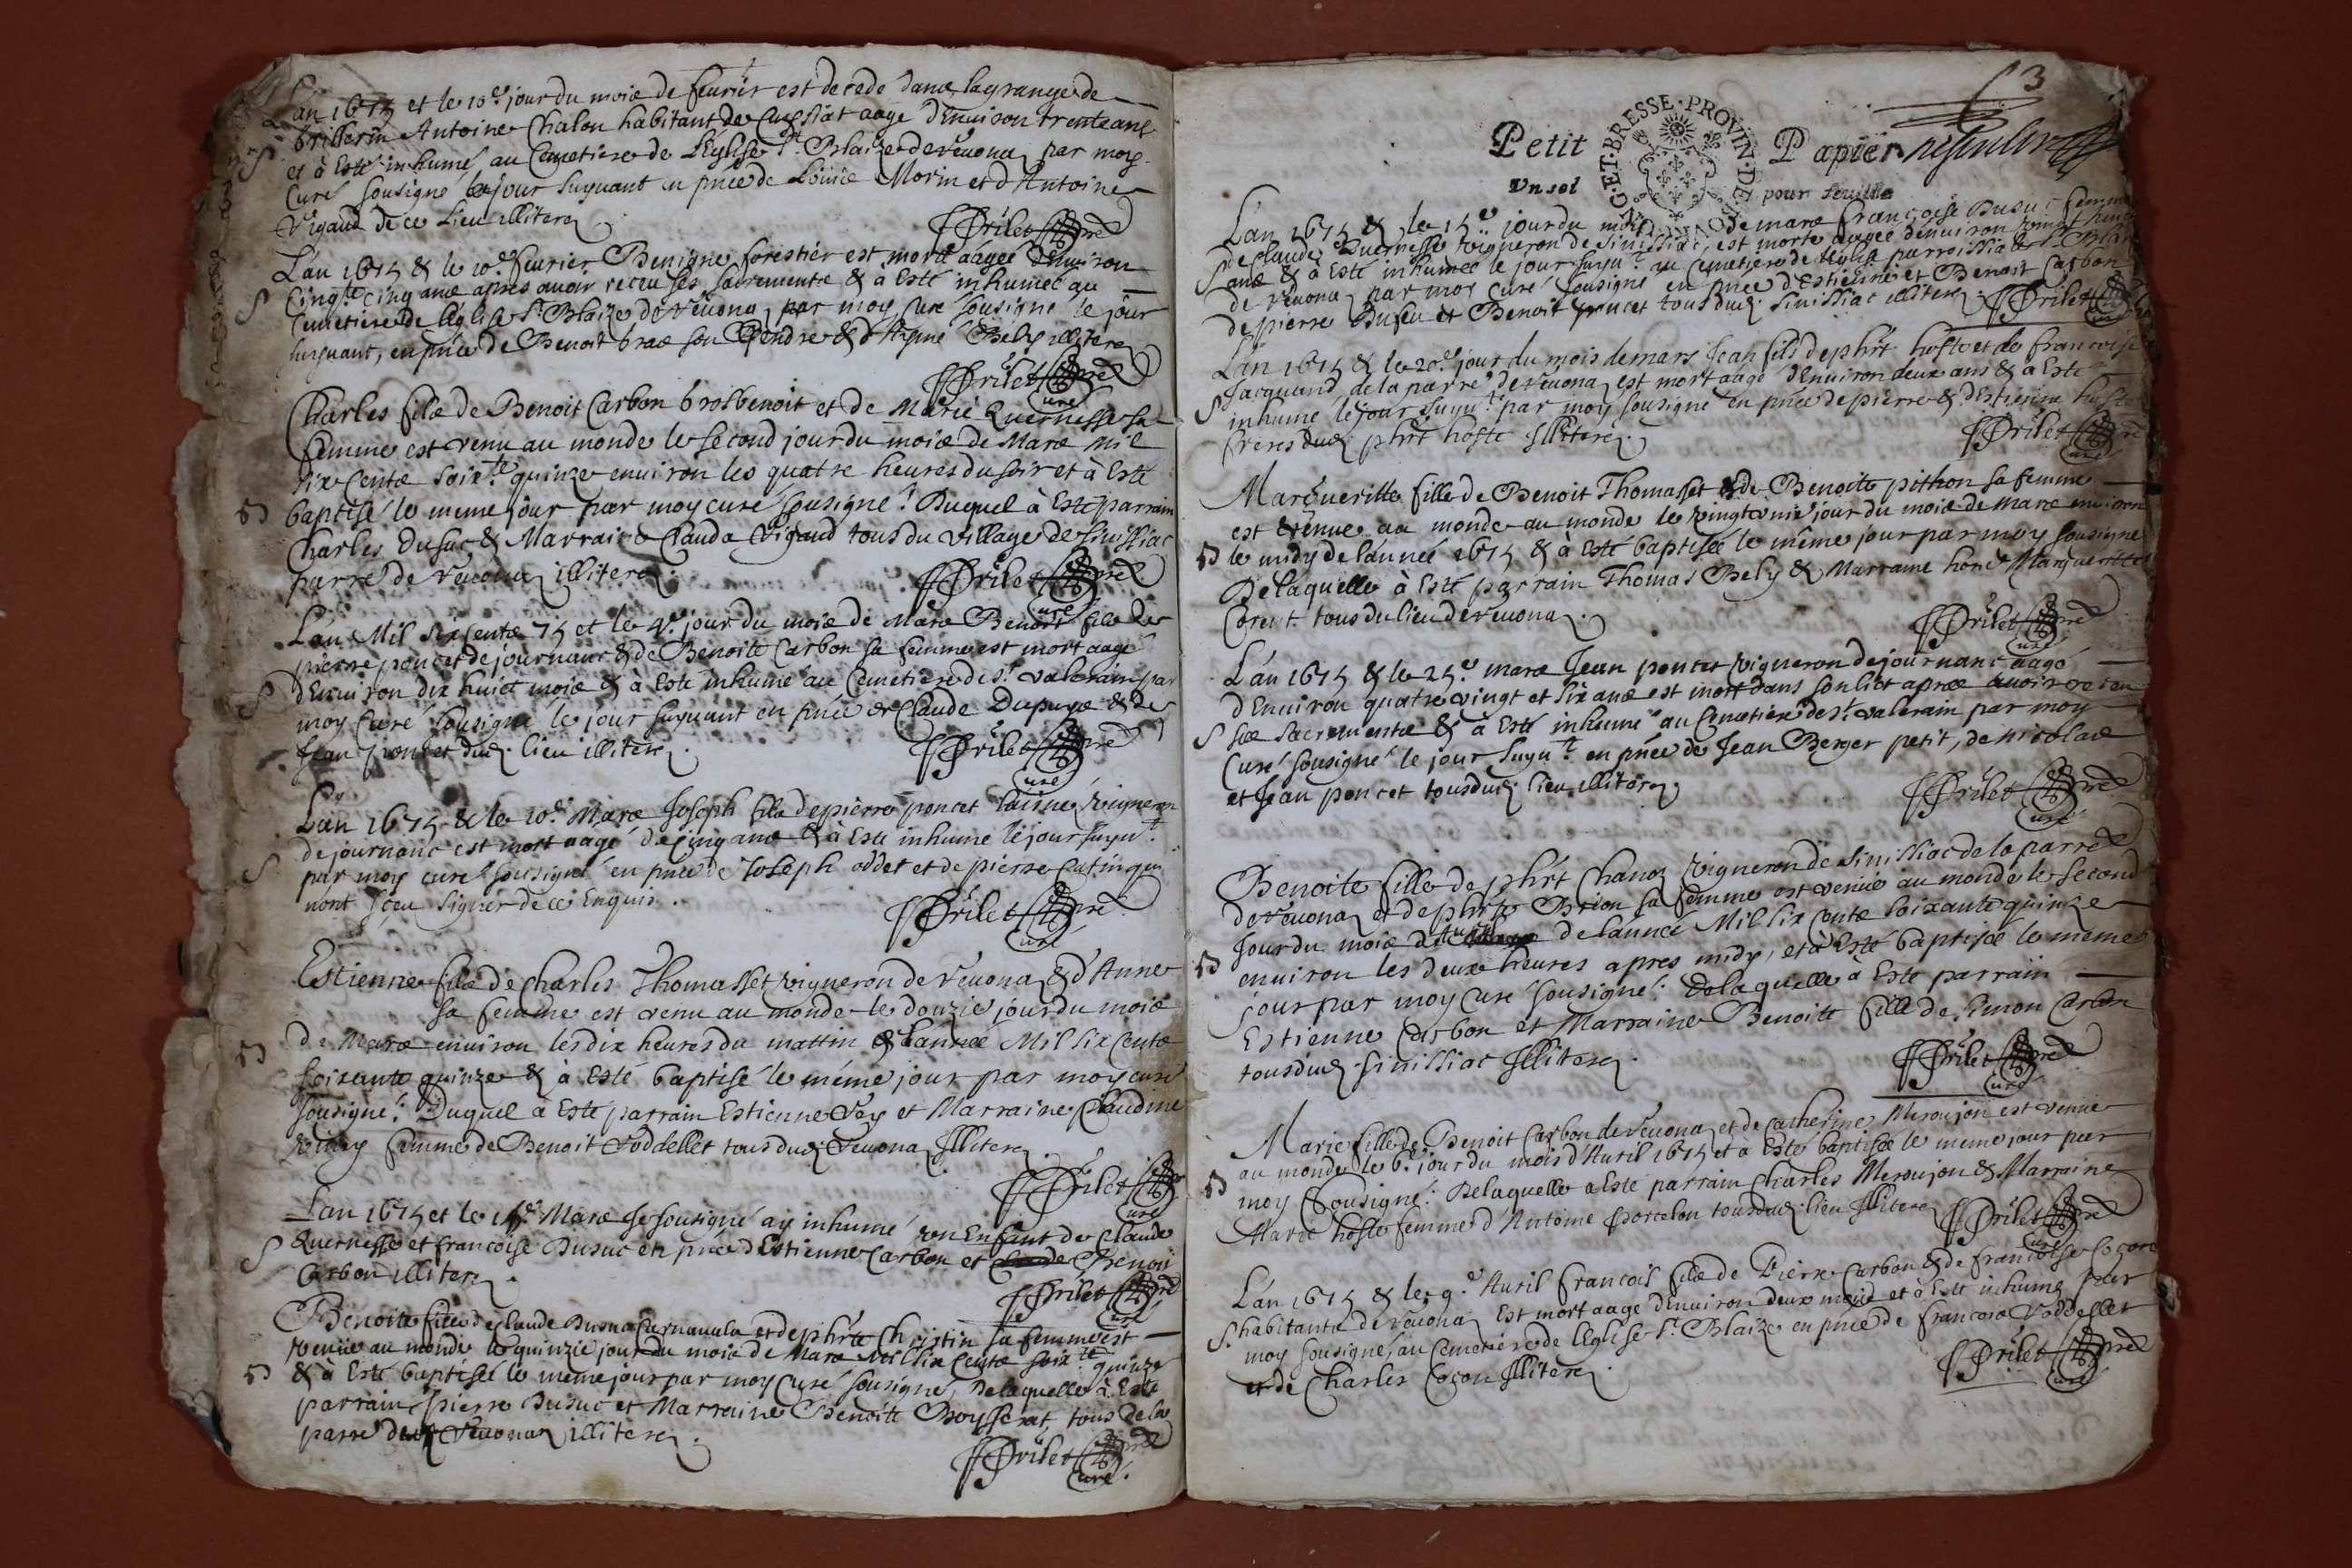 Lan 1675 et le 10e jour du moies de feurier est decede dans la grange de
brillerin Antoine Chalon habitant de Cuissiat aagé d'Enuiron trente ans
et à Esté inhumé au Cemetiere de L'Eglise St Blaize de reuona par moy
Curé sousigné le jour suyuant en pnce de Louis Morin et d'Antoine
Vigaud de ce Lieu illiterez
Prilet pre
L'an 1675 & le 10e feurier Benigne forestier est morte aagée d'Enuiron
Cinqte cinq ans apres auoir receu ses sacrements & à Esté inhumée au
Cemetiere de l'Eglise St Blaize de Reuona par moy Curé sousigné le jour
suyuant, en pnce de Benoit bras son Gendre & d'Aymé Bely illiterez
Prilet pre
curé
Charles fils de Benoit Carbon brosbenoit et de Marie Quernesse sa
femme est venu au monde le second jour du mois de Mars mil
six Cents soixte quinze enuiron les quatre heures du soir et à Esté
baptisé le meme jour par moy curé sousigné: Duquel à Esté parrain
Charles Dusuc & Marraine Clauda Vigaud tous du village de Sinissiac
parre de reuona illiterez
Prilet pre
curé
L'an Mil six cents 75 et le 4e jour du mois de Mars Benoit fils de
pierre poncet de journans & de Benoite Carbon sa femme est mort aagé
d'Enuiron dix huict mois & à Esté inhumé au Cemetiere de St valerain par
moy Curé sousigné le jour suyuant en pnce de Claude Dupuys & de
Jean poncet dud. lieu illiterez
Prilet pre
curé
L'an 1675 & le 10e Mars Joseph fils de pierre poncet laisné vigneron
de journans est mort aagé de cinq ans & à Esté inhumé le jour suyut
par moy curé sousigné en pnce de Joseph oddet et de pierre Catin qui
nont sceu signer de ce Enquis.
Prilet pre
curé
Estienne fils de Charles Thomasset vigneron de reuona & d'Anne
sa femme est venu au monde le douzie jour du mois
de Mars enuiron les dix heures du mattin & l'année Mil six Cents
soixante quinze & à Esté baptisé le méme jour par moy curé
sousigné: Duquel à Esté parrain Estienne Vey et Marraine Claudine
femme de Benoit Voddellet tous dud. reuona Illiterez
Prilet pre
curé
L'an 1675 et le Mars Je sousigné ay inhumé un Enfant de Claude
Quernesse et francoise Dusuc en pnce d'Estienne Carbon et Benoit
Carbon illiterez.
Prilet pre
curé
Benoite fille de Claude Dusuc et de phrte Christin sa femme est
venüe au monde le quinzie jour du mois de Mars Mil six Cents soixte quinze
& à Esté baptisée le meme jour par moy Curé sousigné, Delaquelle à Esté
parrain pierre Dusuc et Marraine Benoite Boysserat, tous de la
parre de Reuona illiterez.
Prilet pre
curé.
3
Petit Papier
Vn sol pour feuille
BOVRG·ET·BRESSE·PROVIN·DE
L'an 1675 & le 15e jour du mois de mars francoise Dusuc femme
de Claude Quernesse vigneron de Sinissiac, est morte aagee denuiron vingt huict
ans & à Esté inhumée le jour suyut au Cemetiere de l'Eglise parroissiale St Blaize
de reuona par moy curé sousigné en pnce d'Estienne et Benoit Carbon
de pierre Dusuc et Benoit poncet tous dud. Sinissiac illiterez. Prilet pre
curé
L'an 1675 & le 20e jour du mois de mars Jean fils de phrt hoste et de francoise
Jacquand de la parre de reuona est mort aagé d'Enuiron deux ans & à Esté
inhumé le jour suyut par moy sousigné en pnce de pierre & d'Estienne hoste
freres dud. phrt hoste Illiterez.
Prilet pre
curé
Margueritte fille de Benoit Thomasset & de Benoite pithon sa femme
est venue au monde au monde le vingtvnie jour du mois de Mars enuiron
le midy de l'année 1675 & à Esté baptisée le méme jour par moy sousigné
Delaquelle à Esté parrain Thomas Bely & Marraine hone Margueritte
Corent tous du lieu de reuona.
Prilet pre
curé
L'an 1675 & le 25e mars Jean poncet vigneron de journans aagé
d'Enuiron quatre vingt et six ans est mort dans son lict apres auoir receu
ses sacrements & à Esté inhumé au Cemetiere de St valerain par moy
Curé sousigné le jour suyut en pnce de Jean Berger petit, de nicolas
et Jean poncet tous dud. lieu illiterez
Prilet pre
curé
Benoite fille de phrt Chanoz vigneron de Sinissiac de la parre
de reuona et de phrte Brion sa femme est venue au monde le second
Jour du mois d'Auril de l'année Mil six Cents soixante quinze
enuiron les deux heures apres midy, et à Esté baptisée le méme
jour par moy Curé sousigné: Delaquelle à Esté parrain
Estienne Carbon et Marraine Benoite fille de Simon Carbon
tous dud. Sinissiac Illiterez.
Prilet pre
curé
Marie fille de Benoit Carbon de reuona et de Catherine Meroujon est venue
au monde le 6e jour du mois d'Auril 1675 et à Esté baptisée le meme jour par
moy sousigné: Delaquelle a Esté parrain Charles Meroujon & Marraine
Marie hoste femme d'Antoine Porcelon tous dud. lieu Illiterez Prilet pre
curé
L'an 1675 & le 9e Auril francois fils de Pierre Carbon & de francoise Coçon
habitants de reuona Est mort aagé d'Enuiron deux mois et à Esté inhumé par
moy sousigné, au Cemetiere de l'Eglise St Blaize en pnce de francois Voddellet
et de Charles Coçon Illiterez.
Prilet pre
curé